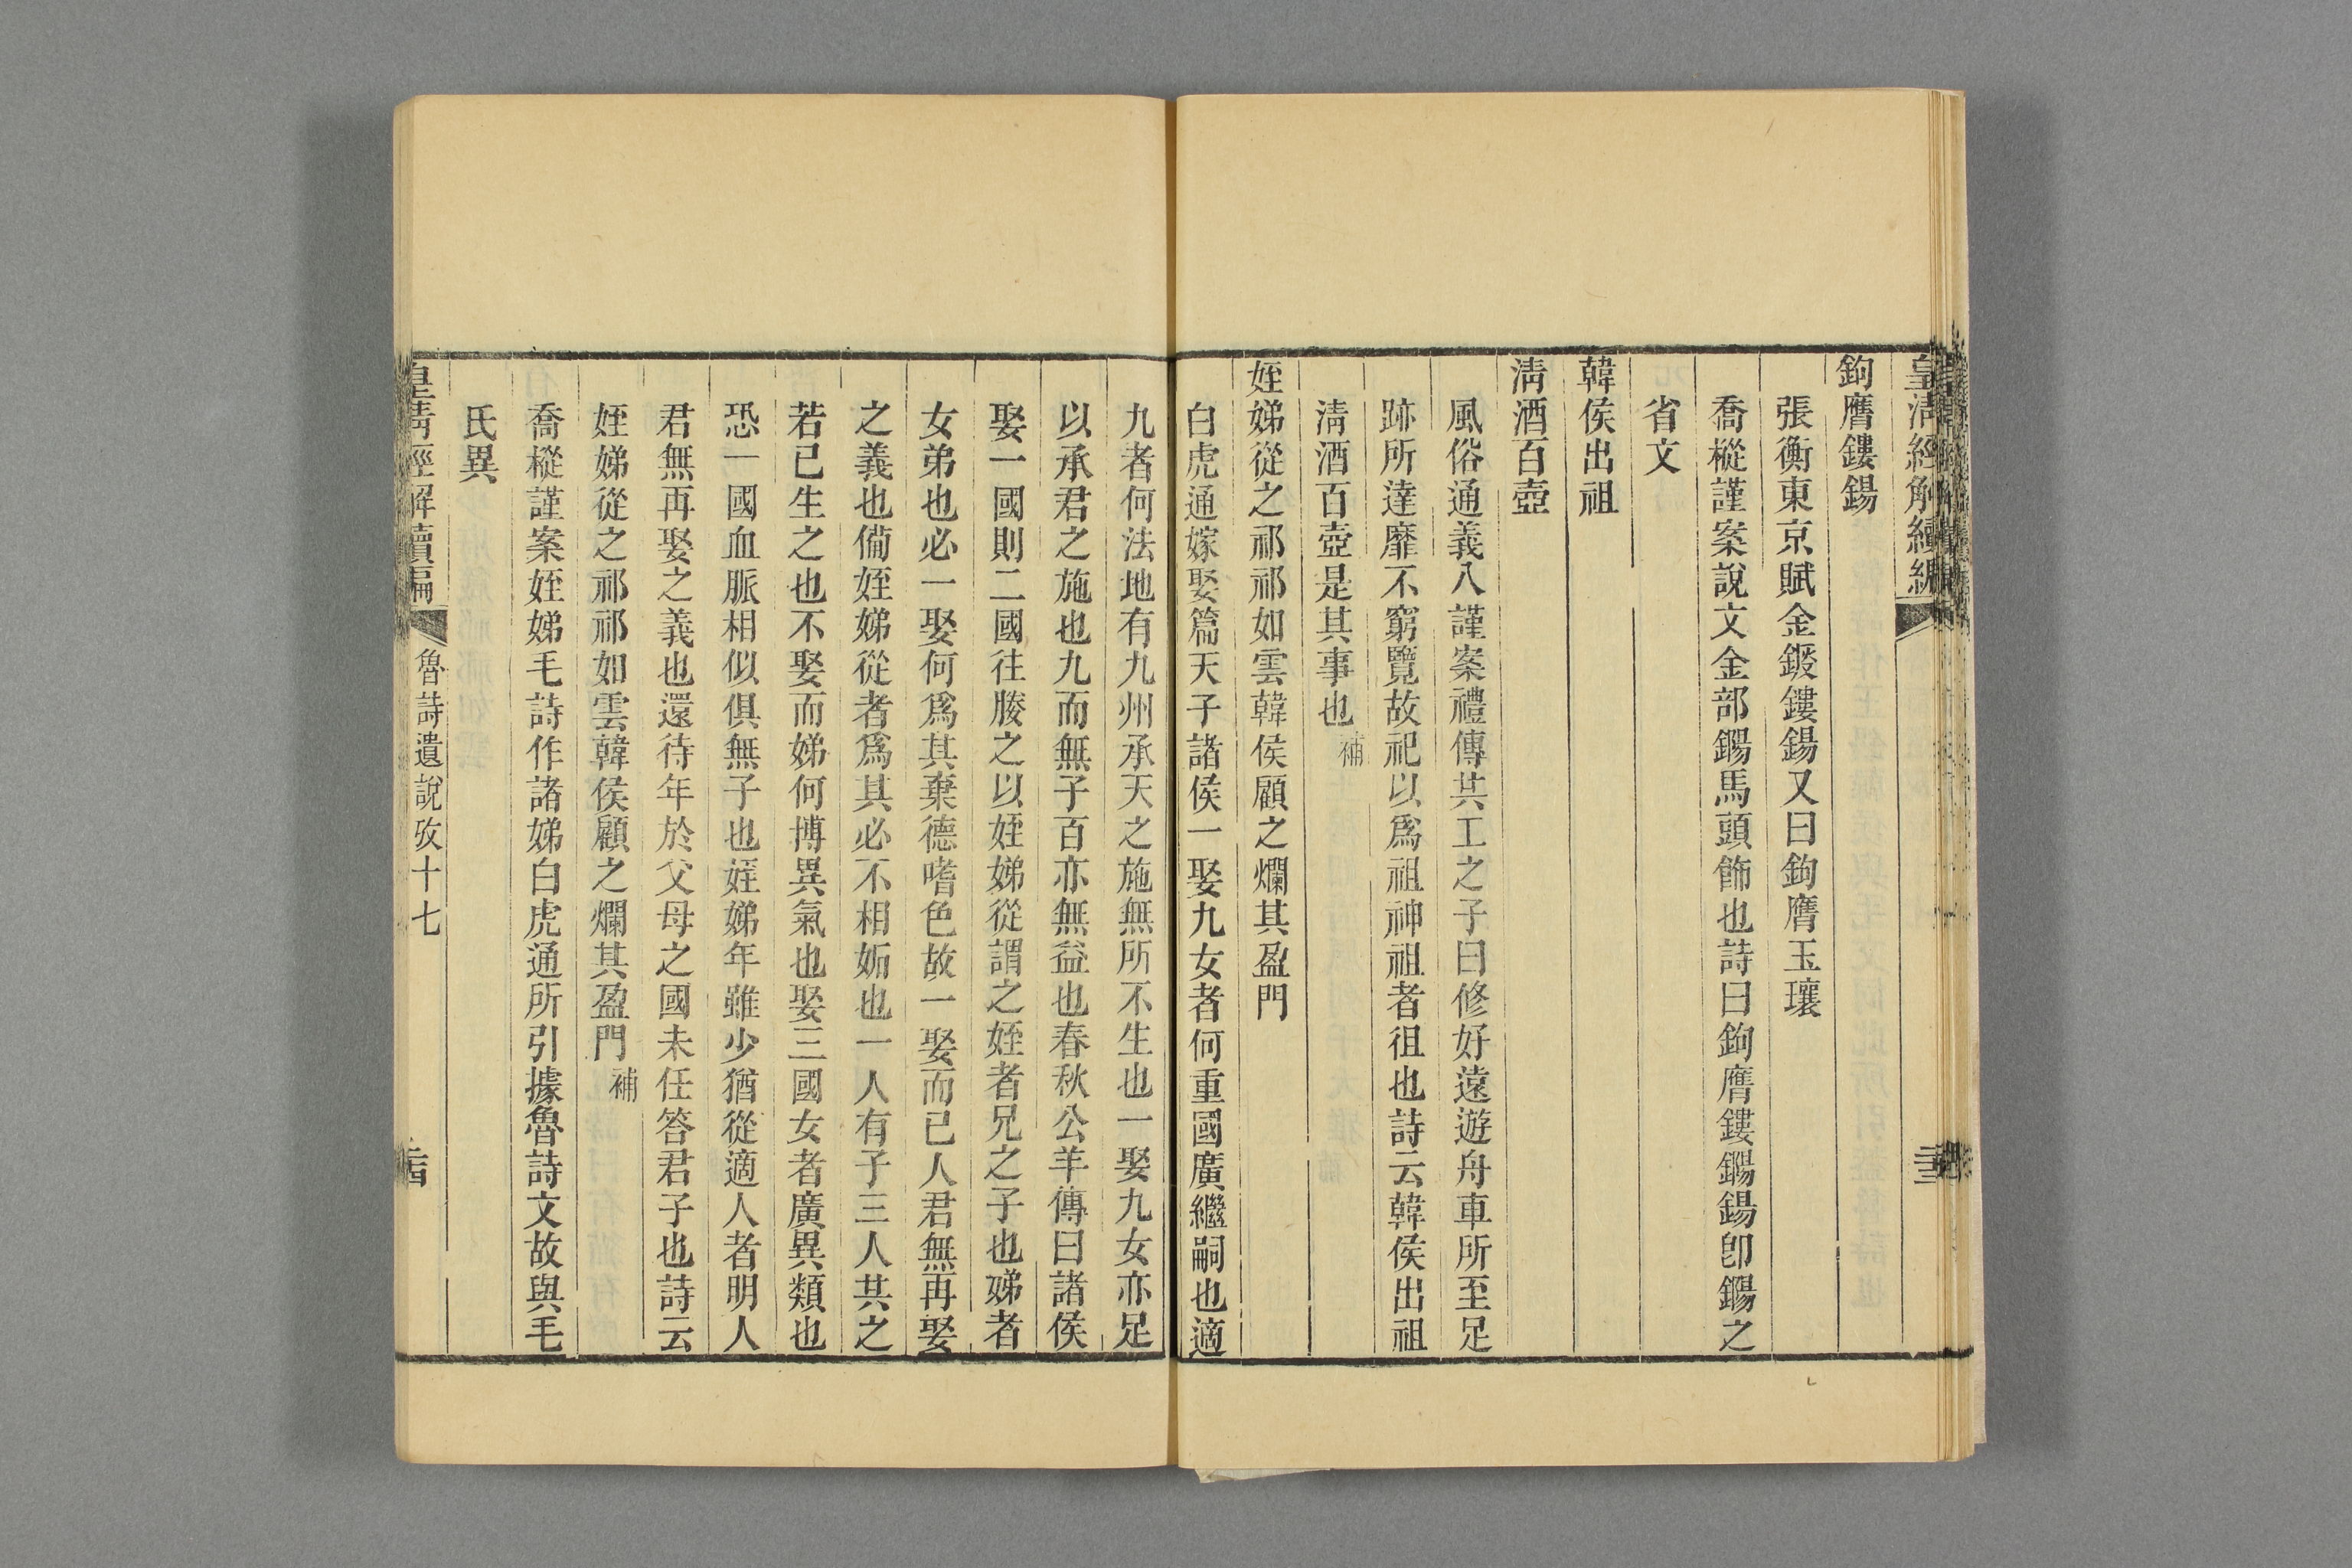 皇淸經解續編
鉤膺鏤鍚
張衡東京賦金鍐鏤鍚又曰鉤膺玉瓖
喬樅謹案說文金部鐊馬頭飾也詩曰鉤膺鏤鐊鍚卽鐊之
省文
韓侯出祖
淸酒百壺
風俗通義八謹案禮傳共工之子曰修好遠遊舟車所至足
跡所達靡不窮覽故祀以爲祖神祖者徂也詩云韓侯出祖
淸酒百壺是其事也補
姪娣從之祁祁如雲韓侯顧之爛其盈門
白虎通嫁娶篇天子諸侯一娶九女者何重國廣繼嗣也適
九者何法地有九州承天之施無所不生也一娶九女亦足
以承君之施也九而無子百亦無益也春秋公羊傳曰諸侯
娶一國則二國往媵之以姪娣從謂之姪者兄之子也娣者
女弟也必一娶何爲其棄德嗜色故一娶而已人君無再娶
之義也備姪娣從者爲其必不相妬也一人有子三人共之
若已生之也不娶而娣何博異氣也娶三國女者廣異類也
恐一國血脈相似俱無子也姪娣年雖少猶從適人者明人
君無再娶之義也還待年於父母之國未任答君子也詩云
姪娣從之祁祁如雲韓侯顧之爛其盈門補
喬樅謹案姪娣毛詩作諸娣白虎通所引據魯詩文故與毛
氏異
皇淸經解續編 魯詩遺說攷十七